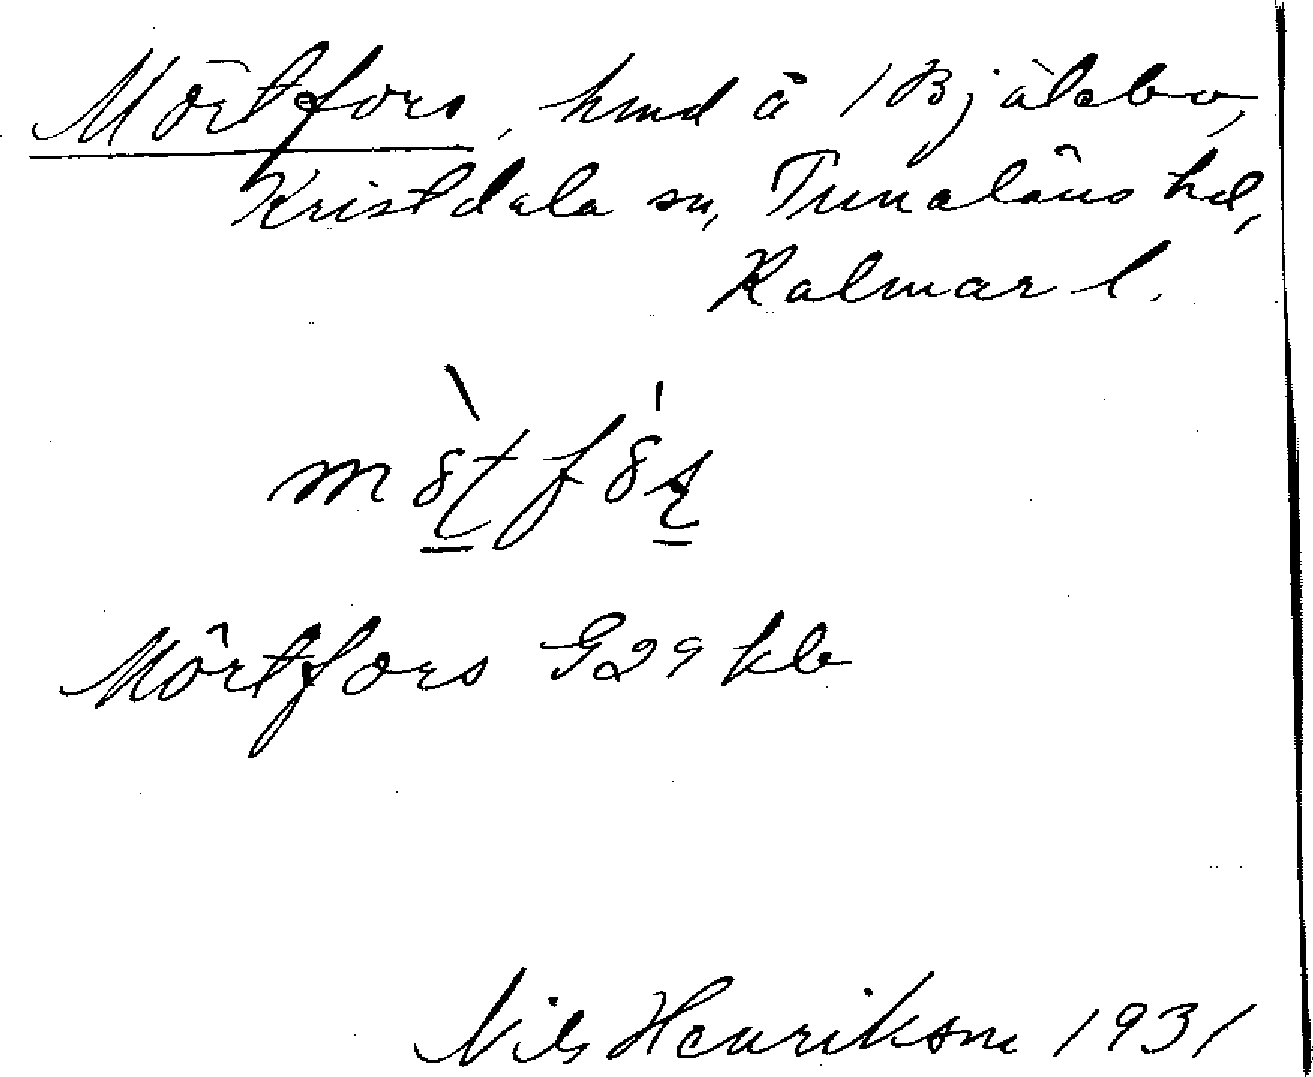 Mörtfors, hmd å 1 Bjälebo,
Kristdala sn, Tunaläns hd,
Kalmar l.
Mörtfors G29 kb
Nils Henrikson 1931